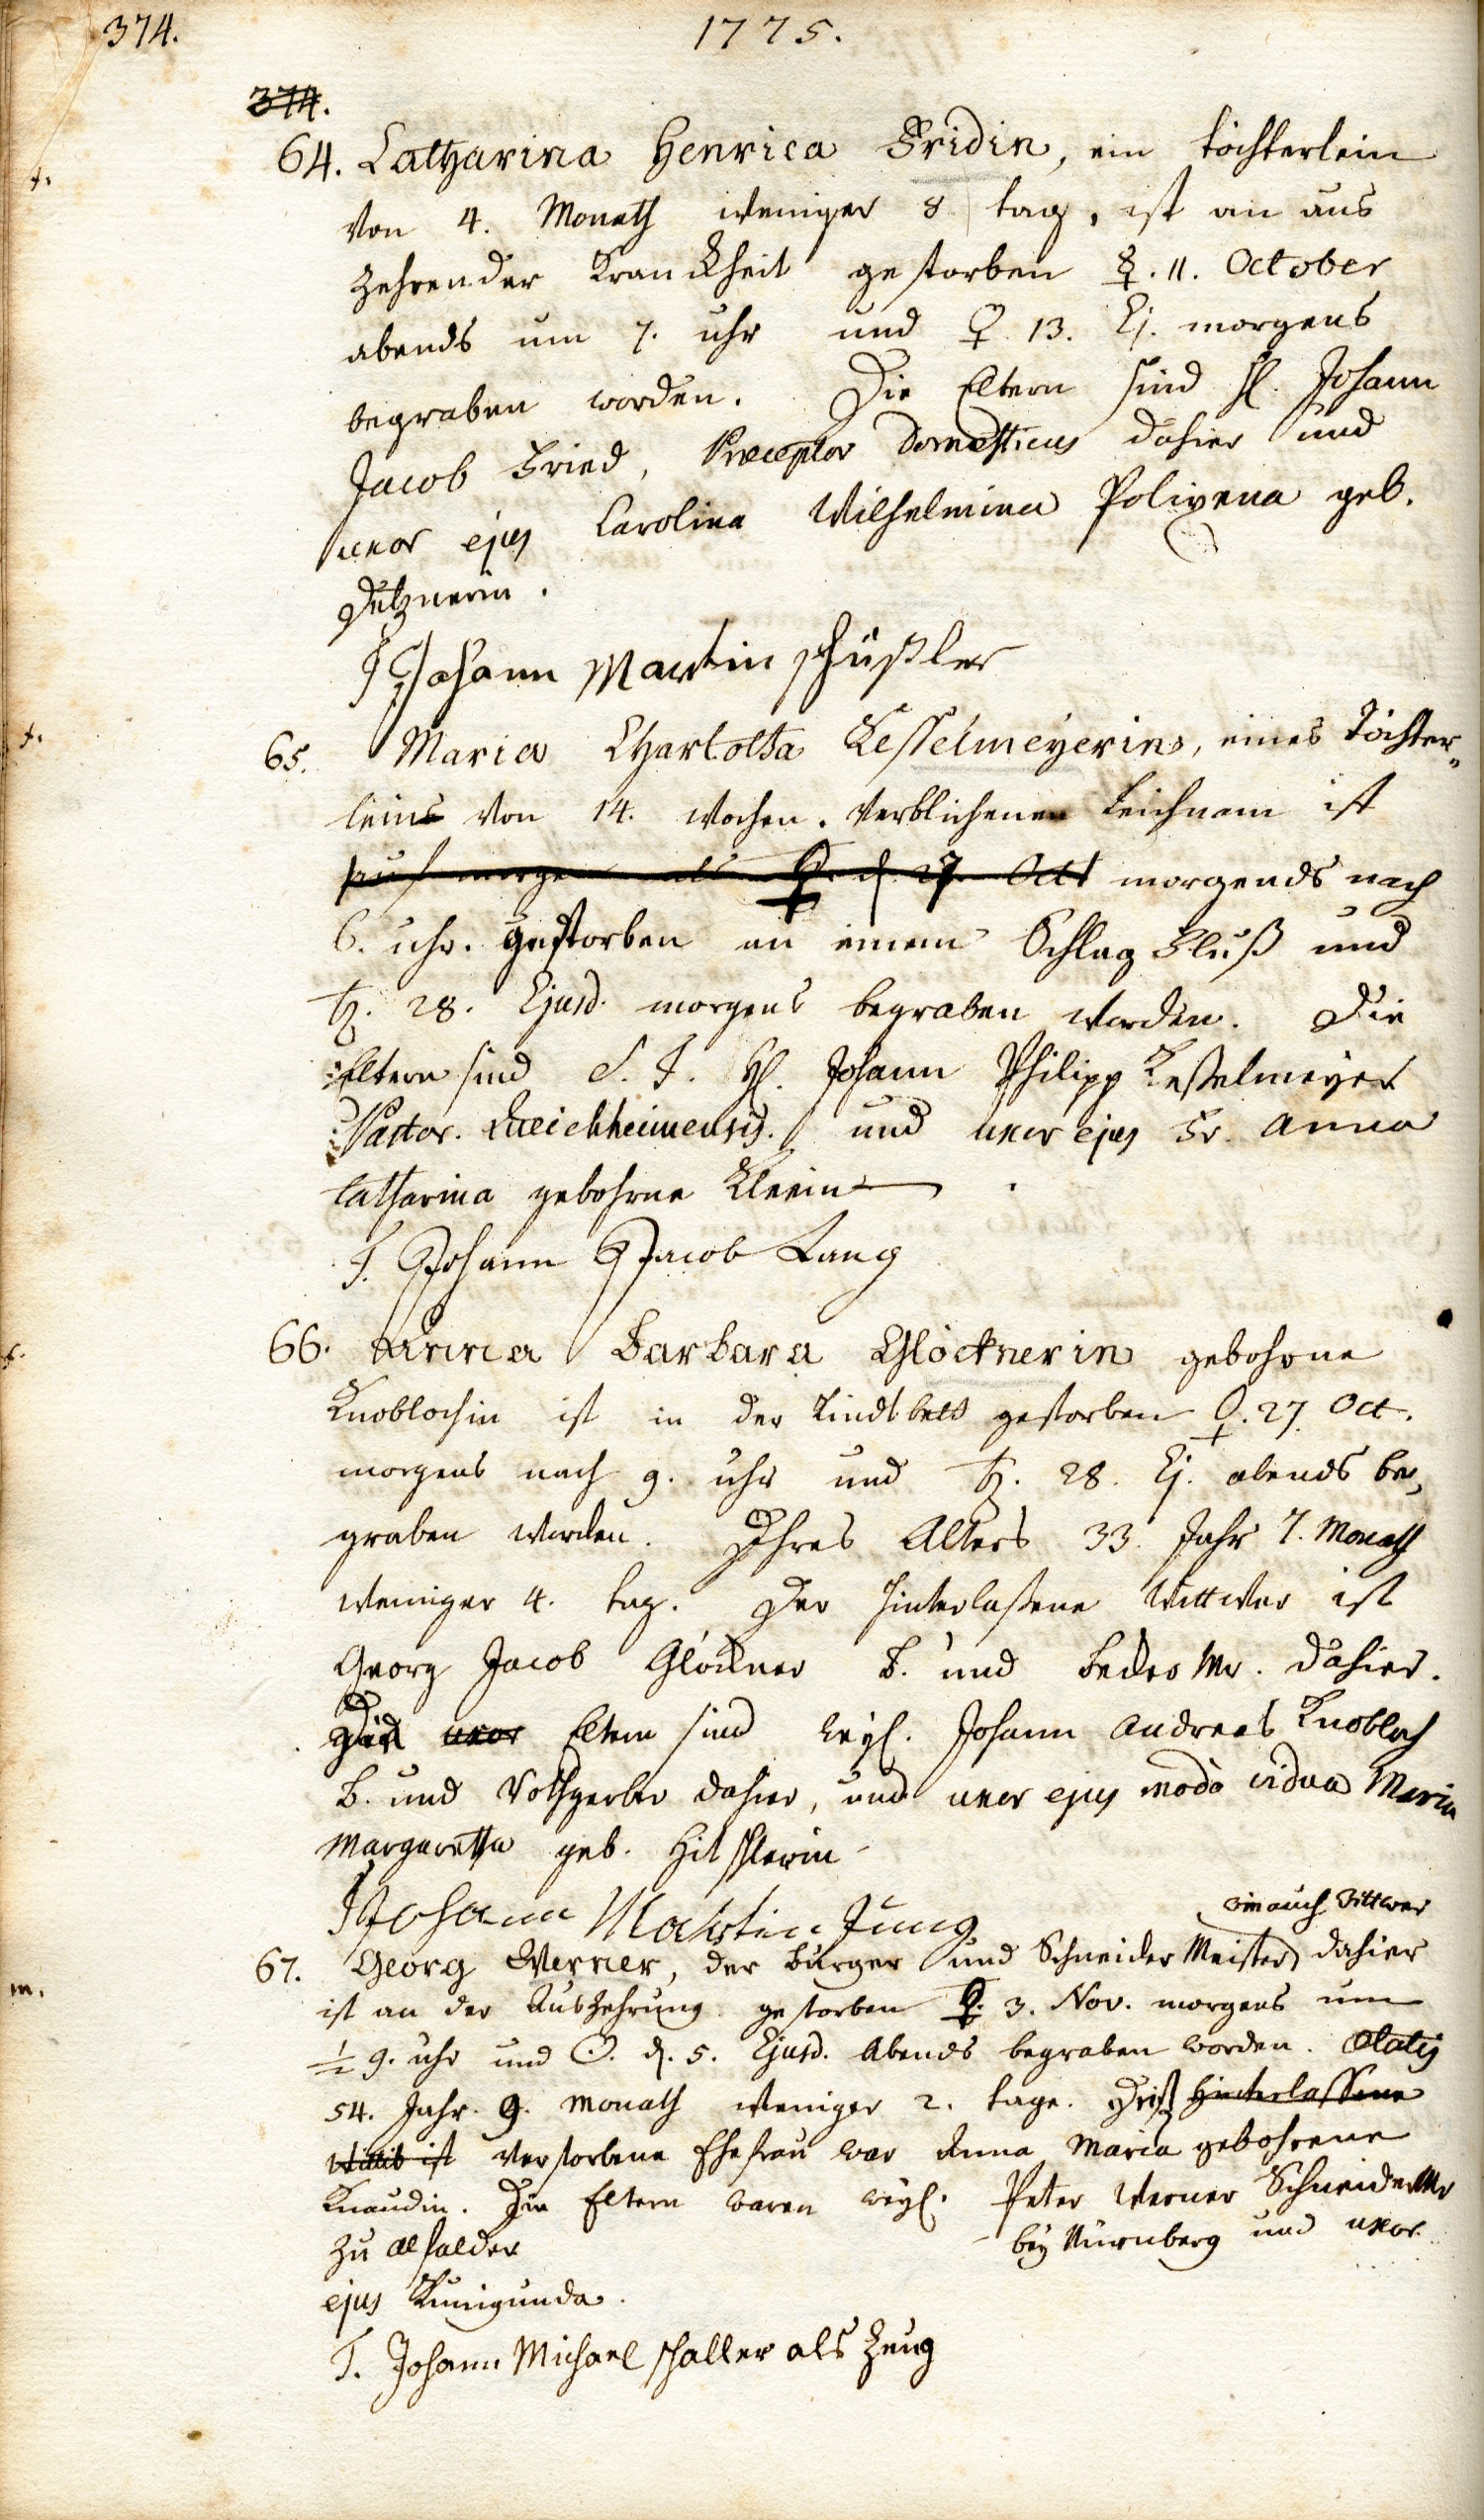 374.
1775.
374.
f.
64. Catharina Henrica Fridin, ein töchterlein
von 4. Monath weniger 8 tag, ist an aus
zehrender Kranckheit gestorben ☿. 11. October
abends um 7. uhr und ♀ 13. Ej. morgens
begraben worden. Die Eltern sind H. Johann
Jacob Fried, Praeceptor Domesticus dahier und
uxor ejus Carolina Wilhelmina Polixena geb.
T Johann Martin schüßler
f.
65. Maria Charlotta Kesselmeyerin, eines Töchter„
leins von 14. Wochen. Verblichener Leichnam ist
auf morgens als ♀. d. 27. Oct morgends nach
6. uhr. gestorben an einem Schlag Fluß und
♄. 28. Ejusd. morgens begraben worden. Die
Eltern sind S. T. H. Johann Philipp Keßelmeyer
Pastor. und uxor ejus Fr. Anna
Catharina gebohrne Kleein
T. Johann Jacob Lang
f.
66. Anna Barbara Glöcknerin gebohrne
Knoblochin ist in der Kindtbett gestorben ♀. 27. Oct.
morgens nach 9. uhr und ♄. 28. Ej. abends be„
graben worden. Ihres Alters 33. Jahr 7. Monath
weniger 4. tag. Der hinterlaßene Wittwer ist
Georg Jacob Glöckner B. und Becker Mr. dahier.
Die uxor Eltern sind weyl. Johann Andreas Knobloch
B. und Rothgerber dahier, und uxor ejus modò vidua Maria
Margaretha geb. Hitschlerin
T Johann Martin Jung
ein auch Wittwer
m.
67. Georg Werner, der burger und Schneider Meister dahier
ist an der Auszehrung gestorben ♀. 3. Nov. morgens um
½ 9. uhr und ☉. d. 5. Ejusd. Abends begraben worden. Ætatis
54. Jahr. 9. Monath weniger 2. tage. Deß hinterlassene
Wittib ist verstorbene Ehefrau war Anna Maria gebohrene
Knaudin. Die Eltern waren weyl. Peter Werner Schneider Mr
zu Alfalder bey Nürnberg und uxor
ejus Kunigunda.
T. Johann Michael schaller als Zeug